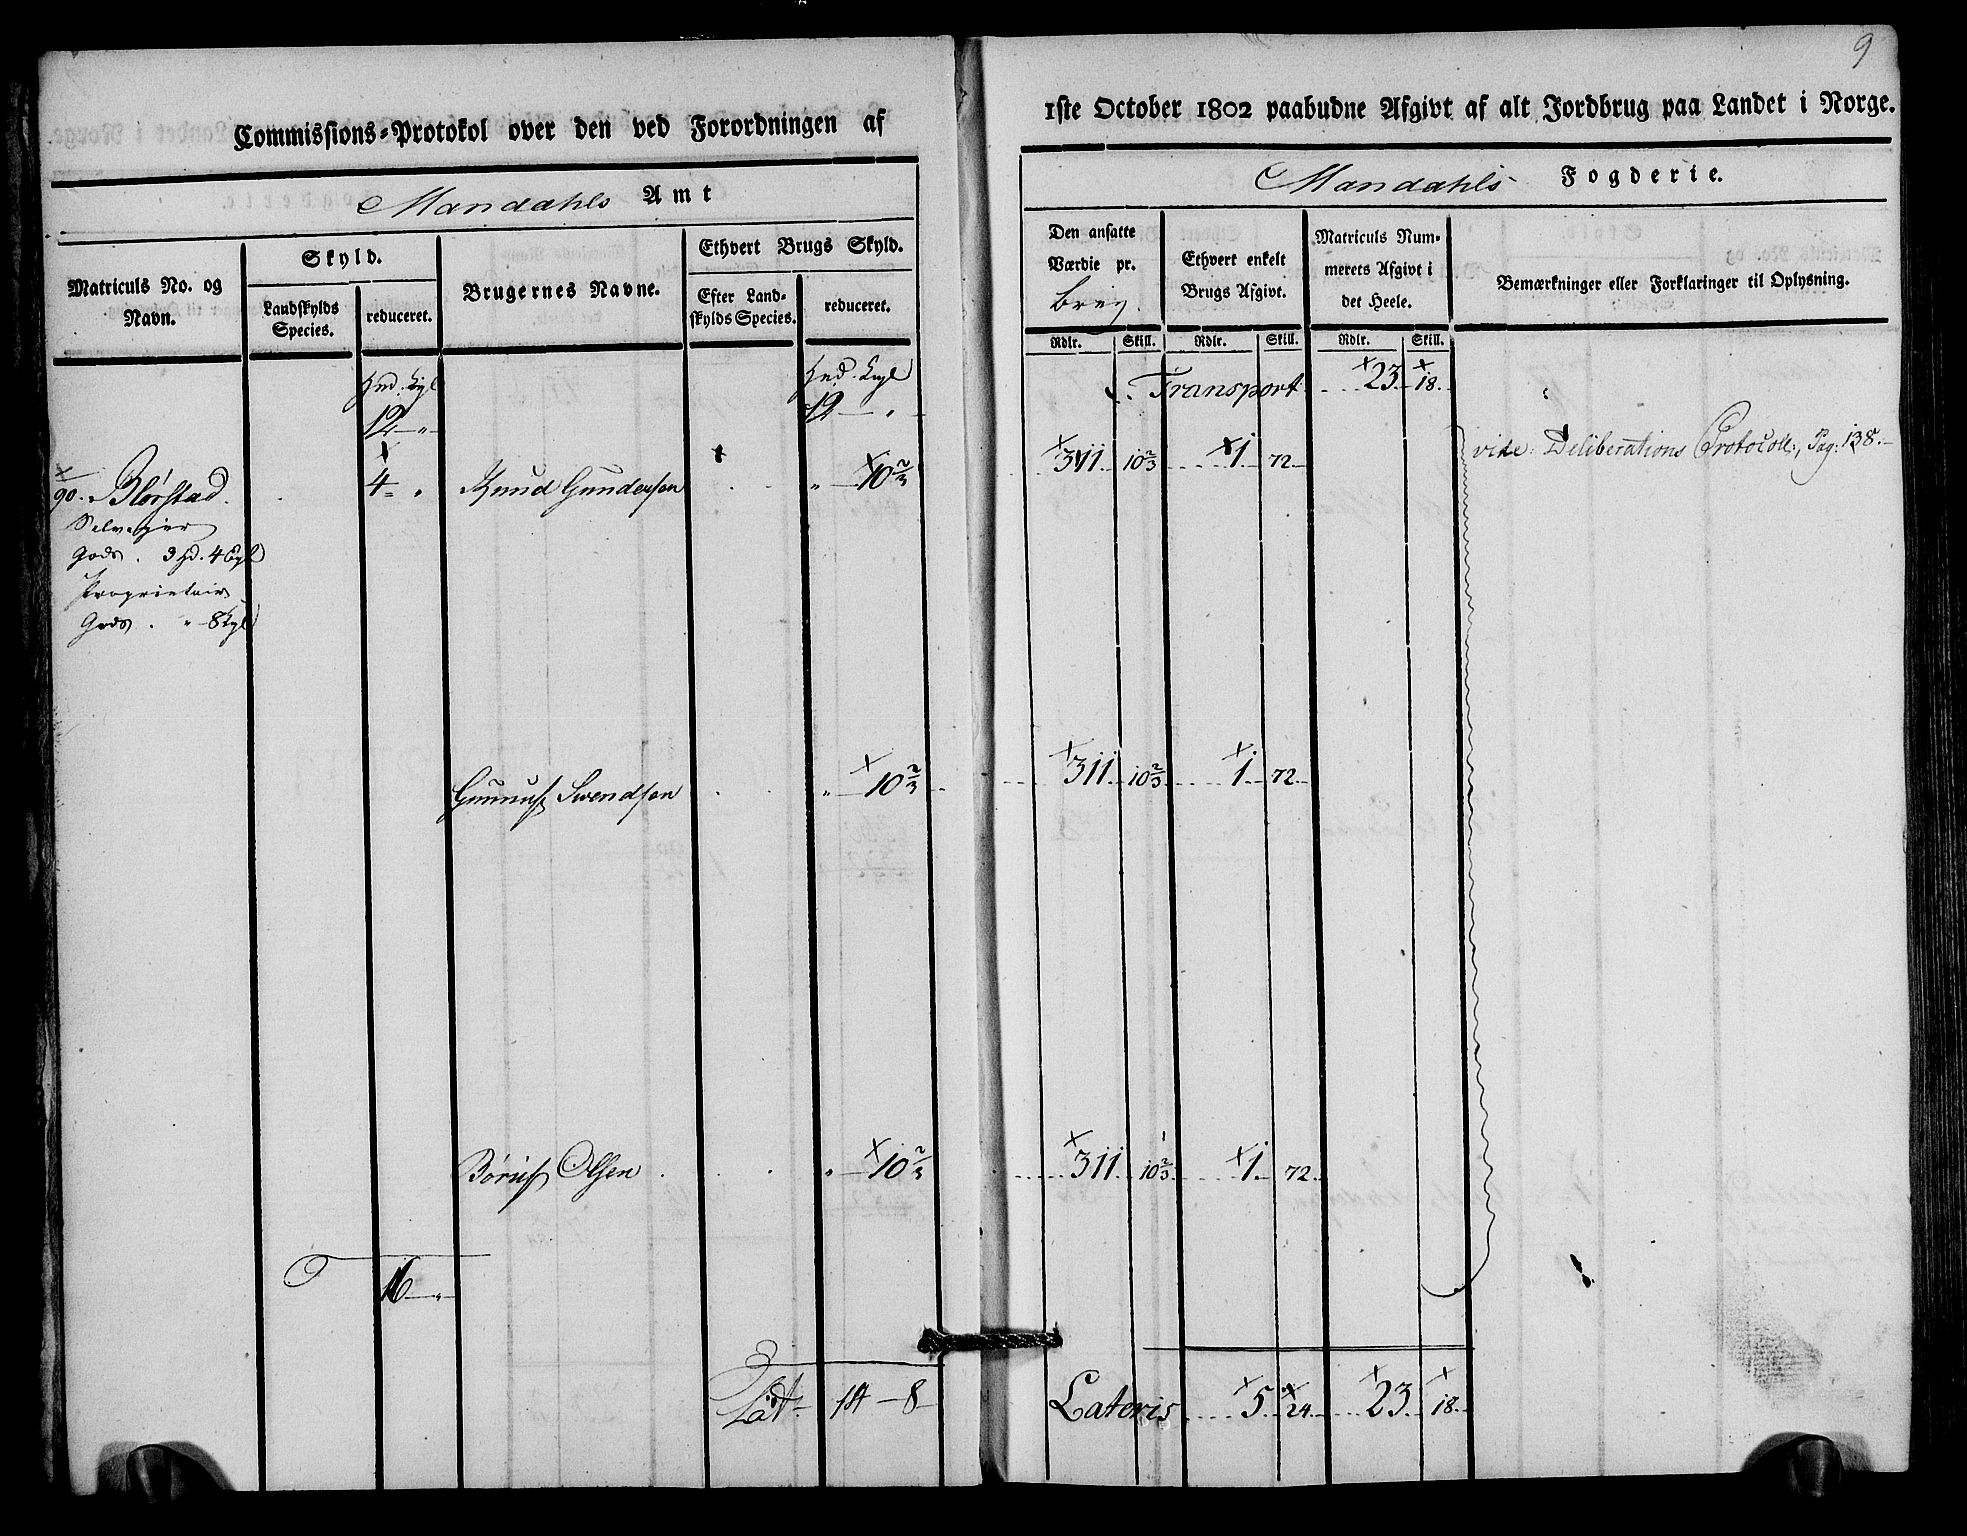 9
Commissions-Protokol over den ved Forordningen af
1ste October 1802 paabudne Afgivt af alt Jordbrug paa Landet i Norge.
Mandahls Amt
Mandahls Fogderie.
Matriculs No. og Navn.
Skyld.
Landskylds Species.
reduceret.
Brugernes Navne.
Ethvert Brugs Skyld.
Efter Landskylds Species.
reduceret.
Den ansatte
Værdie pr.
brug.
Ethvert enkelt
Brugs Afgivt.
Matriculs Num-
merets Afgivt i
det Heele.
Bemærkninger eller Forklaringer til Oplysning.
Rdlr. Skill. Rdlr. Skill. Rdlr. Skill.
Hud. Kgl Hud. Kgl Transport 23 18.
12 " 12 "
90. Blørstad. 4 " Knud Gundersen " 10 2/3 311 10 2/3 1 72 vide Deliberations Protocoll, Pag: 138.
Selveier
Gods. 3 Hd. 4 Kgl
Proprietair
Gods. " 8 Kgl
Gunnuf Swendsen " 10 2/3 311 10 2/3 1 72
Børuf Olsen " 10 2/3 311 10 2/3 1 72
16 "
Lat 14 8 Lateris 5 24 23 18